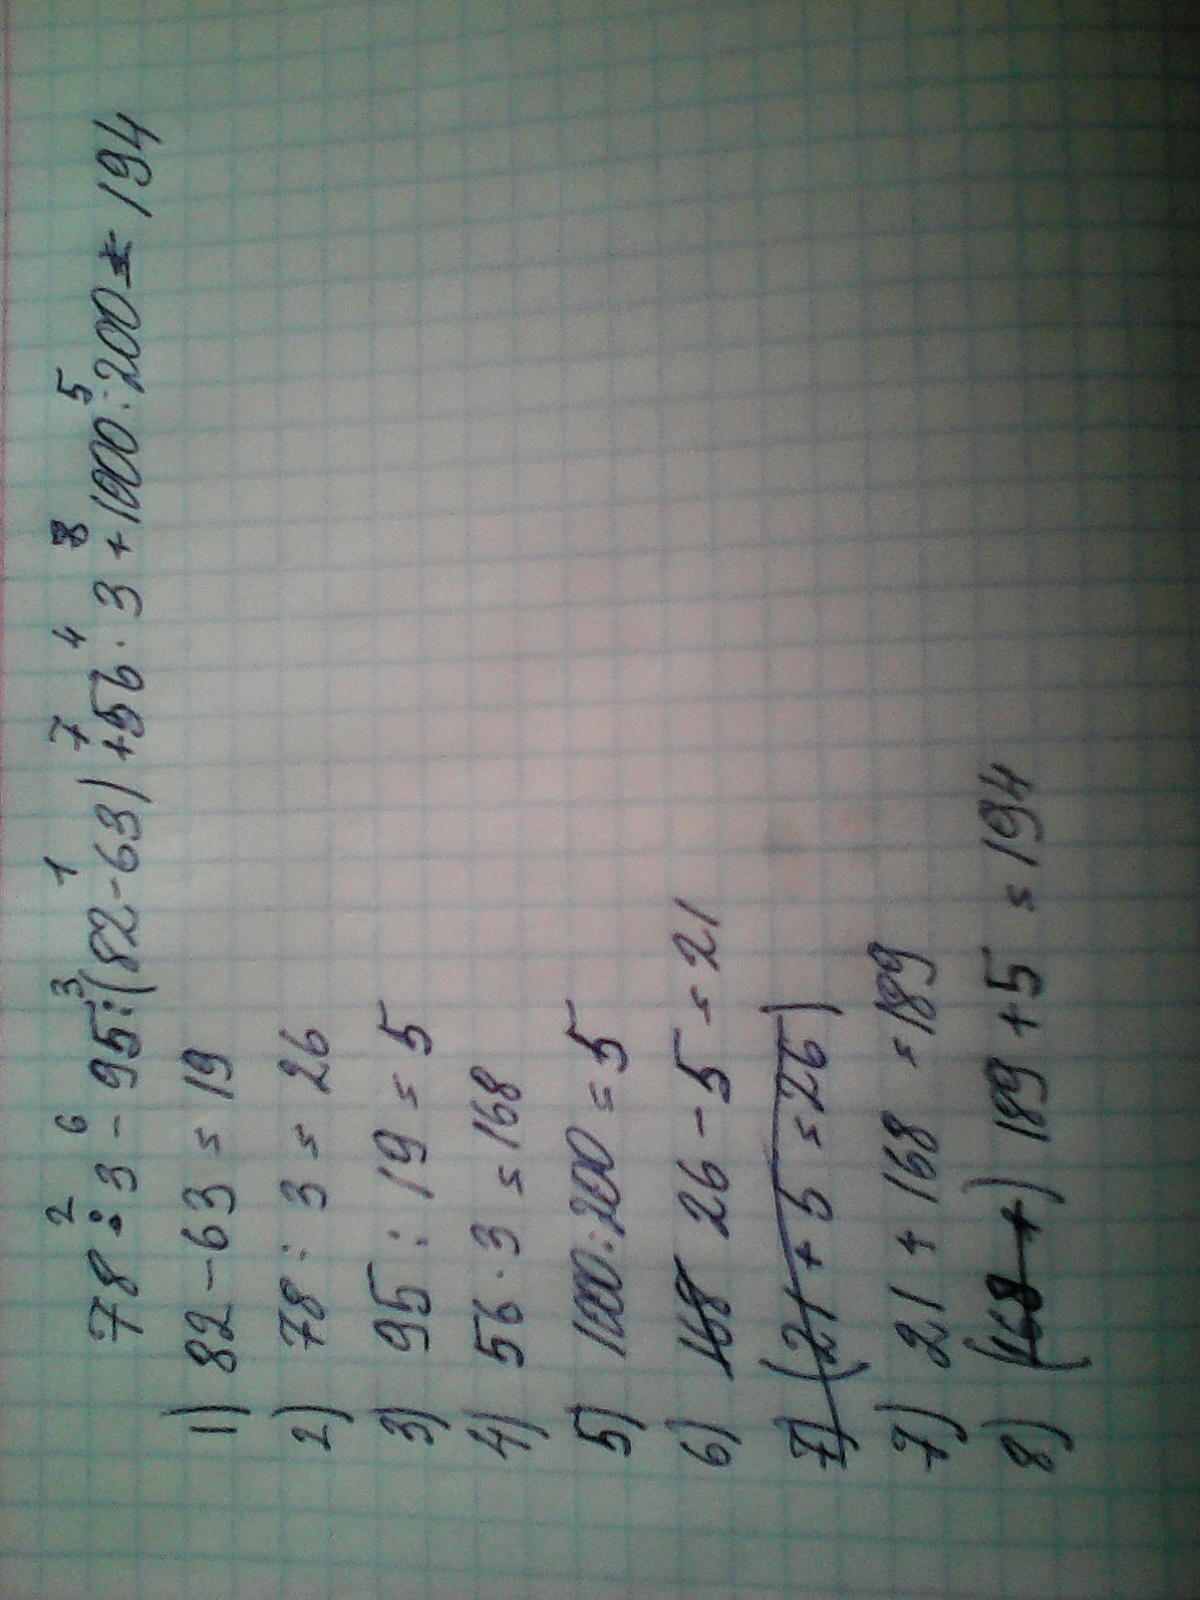 2 6 3 1 7 4 8 5
78:3-95:(82-63)+56·3+1000:200=194
1) 82-63=19
2) 78:3=26
3) 95:19=5
4) 56·3=168
5) 1000:200=5
6) 168 26-5=21
7) (21+5=26)
7) 21+168=189
8) (168+) 189+5=194